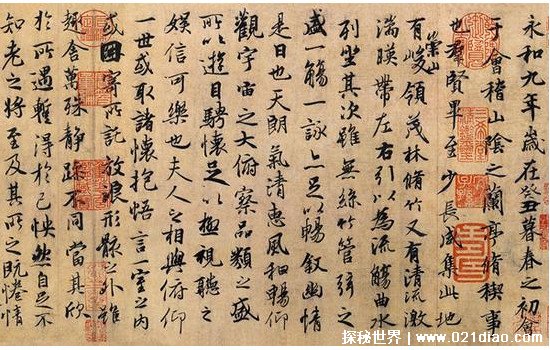 永和九年歲在癸丑暮春之初會
于會稽山陰之蘭亭脩稧事
也羣賢畢至少長咸集此地
有崇山峻領茂林脩竹又有清流激
湍暎帶左右引以為流觴曲水
列坐其次雖無絲竹管弦之
盛一觴一詠亦足以暢敘幽情
是日也天朗氣清惠風和暢仰
觀宇宙之大俯察品類之盛
所以遊目騁懷足以極視聽之
娛信可樂也夫人之相與俯仰
一世或取諸懷抱悟言一室之內
或因寄所託放浪形骸之外雖
趣舍萬殊靜躁不同當其欣
於所遇暫得於己怏然自足不
知老之將至及其所之既惓情
探秘世界
www.021diao.com